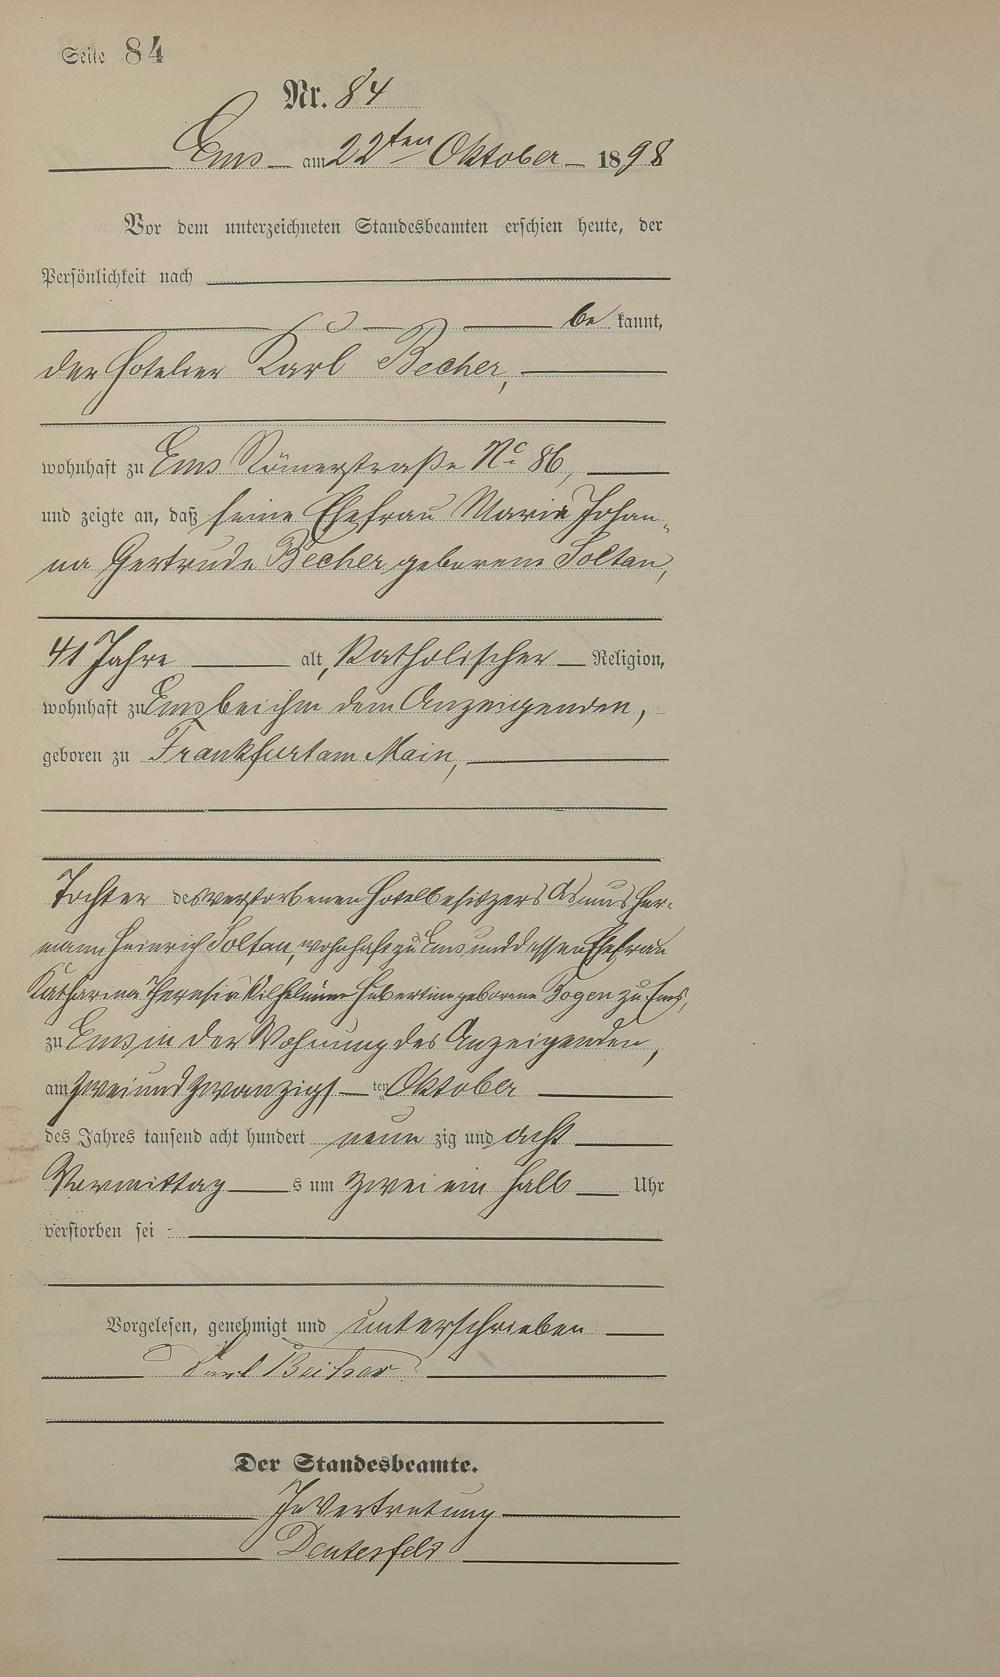 Seite 84
Nr. 84
Ems am 22ten Oktober 1898
Vor dem unterzeichneten Standesbeamten erschien heute, der
Persönlichkeit nach
be kannt,
der Hotelier Karl Becher,
wohnhaft zu Ems Römerstraße No 86,
und zeigte an, daß seine Ehefrau Maria Johan-
na Gertrude Becher geborene Soltan,
41 Jahre alt, katholischer Religion,
wohnhaft zu Ems bei ihm dem Anzeigenden,
geboren zu Frankfurt am Main,
Tochter des verstorbenen Hotelbesitzers Asmus Her-
mann Heinrich Soltan, wohnhaft zu Ems und dessen Ehefrau
Katharina Theresia Wilhelmine Hubertine geborene zu Ems,
zu Ems in der Wohnung des Anzeigenden,
am zwei und zwanzigs ten Oktober
des Jahres tausend acht hundert neun zig und acht
Vormittag s um zwei ein halb Uhr
verstorben sei
Vorgelesen, genehmigt und unterschrieben
Karl Becher
Der Standesbeamte.
In Vertretung